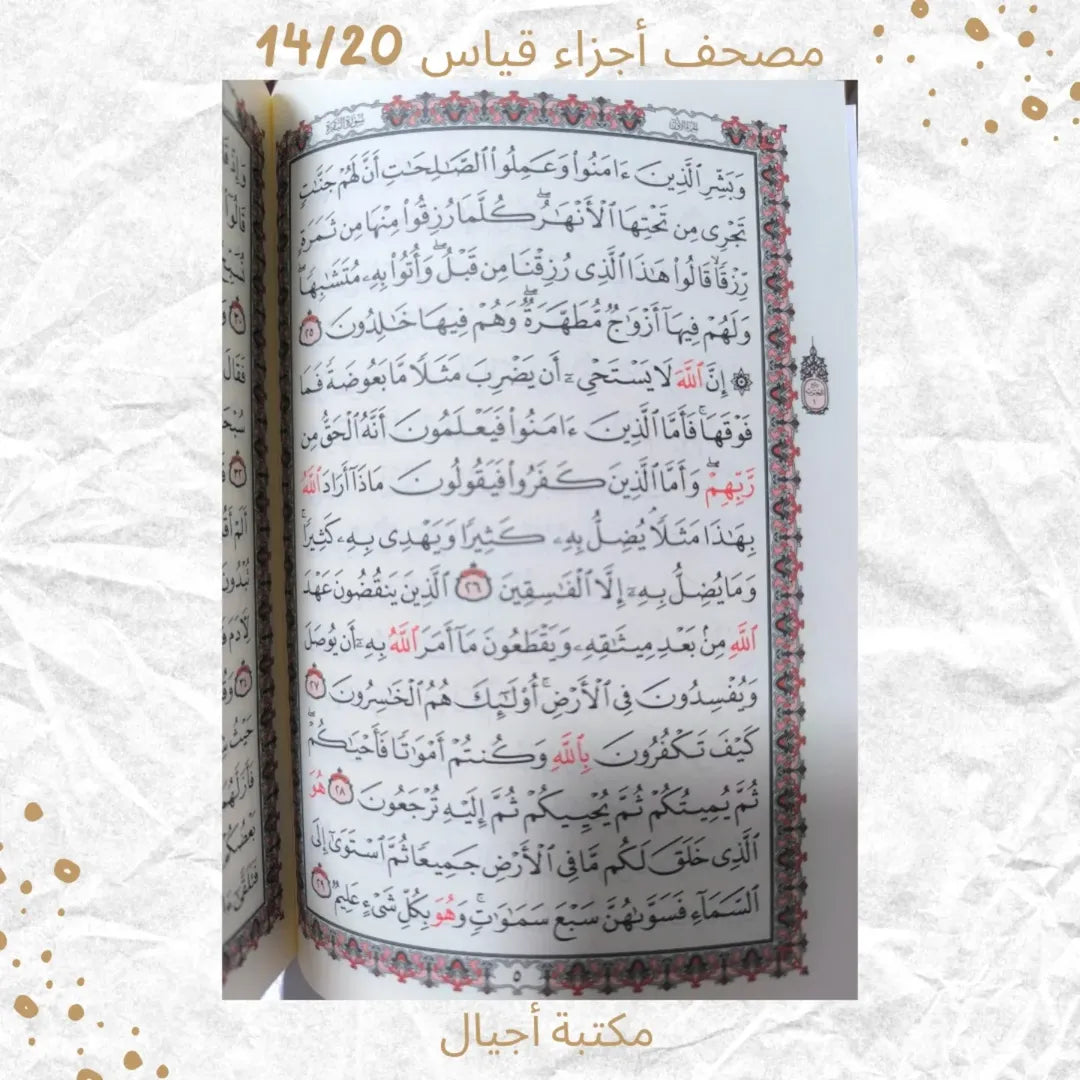 مصحف أجزاء قياس 14/20
سورة البقرة
الجزء الأول
وَبَشِّرِ ٱلَّذِينَ ءَامَنُوا۟ وَعَمِلُوا۟ ٱلصَّٰلِحَٰتِ أَنَّ لَهُمْ جَنَّٰتٍ
تَجْرِى مِن تَحْتِهَا ٱلْأَنْهَٰرُ ۖ كُلَّمَا رُزِقُوا۟ مِنْهَا مِن ثَمَرَةٍ
رِّزْقًا ۙ قَالُوا۟ هَٰذَا ٱلَّذِى رُزِقْنَا مِن قَبْلُ ۖ وَأُتُوا۟ بِهِۦ مُتَشَٰبِهًا ۖ
وَلَهُمْ فِيهَآ أَزْوَٰجٌ مُّطَهَّرَةٌ ۖ وَهُمْ فِيهَا خَٰلِدُونَ ٢٥
۞ إِنَّ ٱللَّهَ لَا يَسْتَحْىِۦٓ أَن يَضْرِبَ مَثَلًا مَّا بَعُوضَةً فَمَا
فَوْقَهَا ۚ فَأَمَّا ٱلَّذِينَ ءَامَنُوا۟ فَيَعْلَمُونَ أَنَّهُ ٱلْحَقُّ مِن
رَّبِّهِمْ ۖ وَأَمَّا ٱلَّذِينَ كَفَرُوا۟ فَيَقُولُونَ مَاذَآ أَرَادَ ٱللَّهُ
بِهَٰذَا مَثَلًا ۘ يُضِلُّ بِهِۦ كَثِيرًا وَيَهْدِى بِهِۦ كَثِيرًا ۚ
وَمَا يُضِلُّ بِهِۦٓ إِلَّا ٱلْفَٰسِقِينَ ٢٦ ٱلَّذِينَ يَنقُضُونَ عَهْدَ
ٱللَّهِ مِنۢ بَعْدِ مِيثَٰقِهِۦ وَيَقْطَعُونَ مَآ أَمَرَ ٱللَّهُ بِهِۦٓ أَن يُوصَلَ
وَيُفْسِدُونَ فِى ٱلْأَرْضِ ۚ أُو۟لَٰٓئِكَ هُمُ ٱلْخَٰسِرُونَ ٢٧
كَيْفَ تَكْفُرُونَ بِٱللَّهِ وَكُنتُمْ أَمْوَٰتًا فَأَحْيَٰكُمْ ۖ
ثُمَّ يُمِيتُكُمْ ثُمَّ يُحْيِيكُمْ ثُمَّ إِلَيْهِ تُرْجَعُونَ ٢٨ هُوَ
ٱلَّذِى خَلَقَ لَكُم مَّا فِى ٱلْأَرْضِ جَمِيعًا ثُمَّ ٱسْتَوَىٰٓ إِلَى
ٱلسَّمَآءِ فَسَوَّىٰهُنَّ سَبْعَ سَمَٰوَٰتٍ ۚ وَهُوَ بِكُلِّ شَىْءٍ عَلِيمٌ ٢٩
٥
مكتبة أجيال